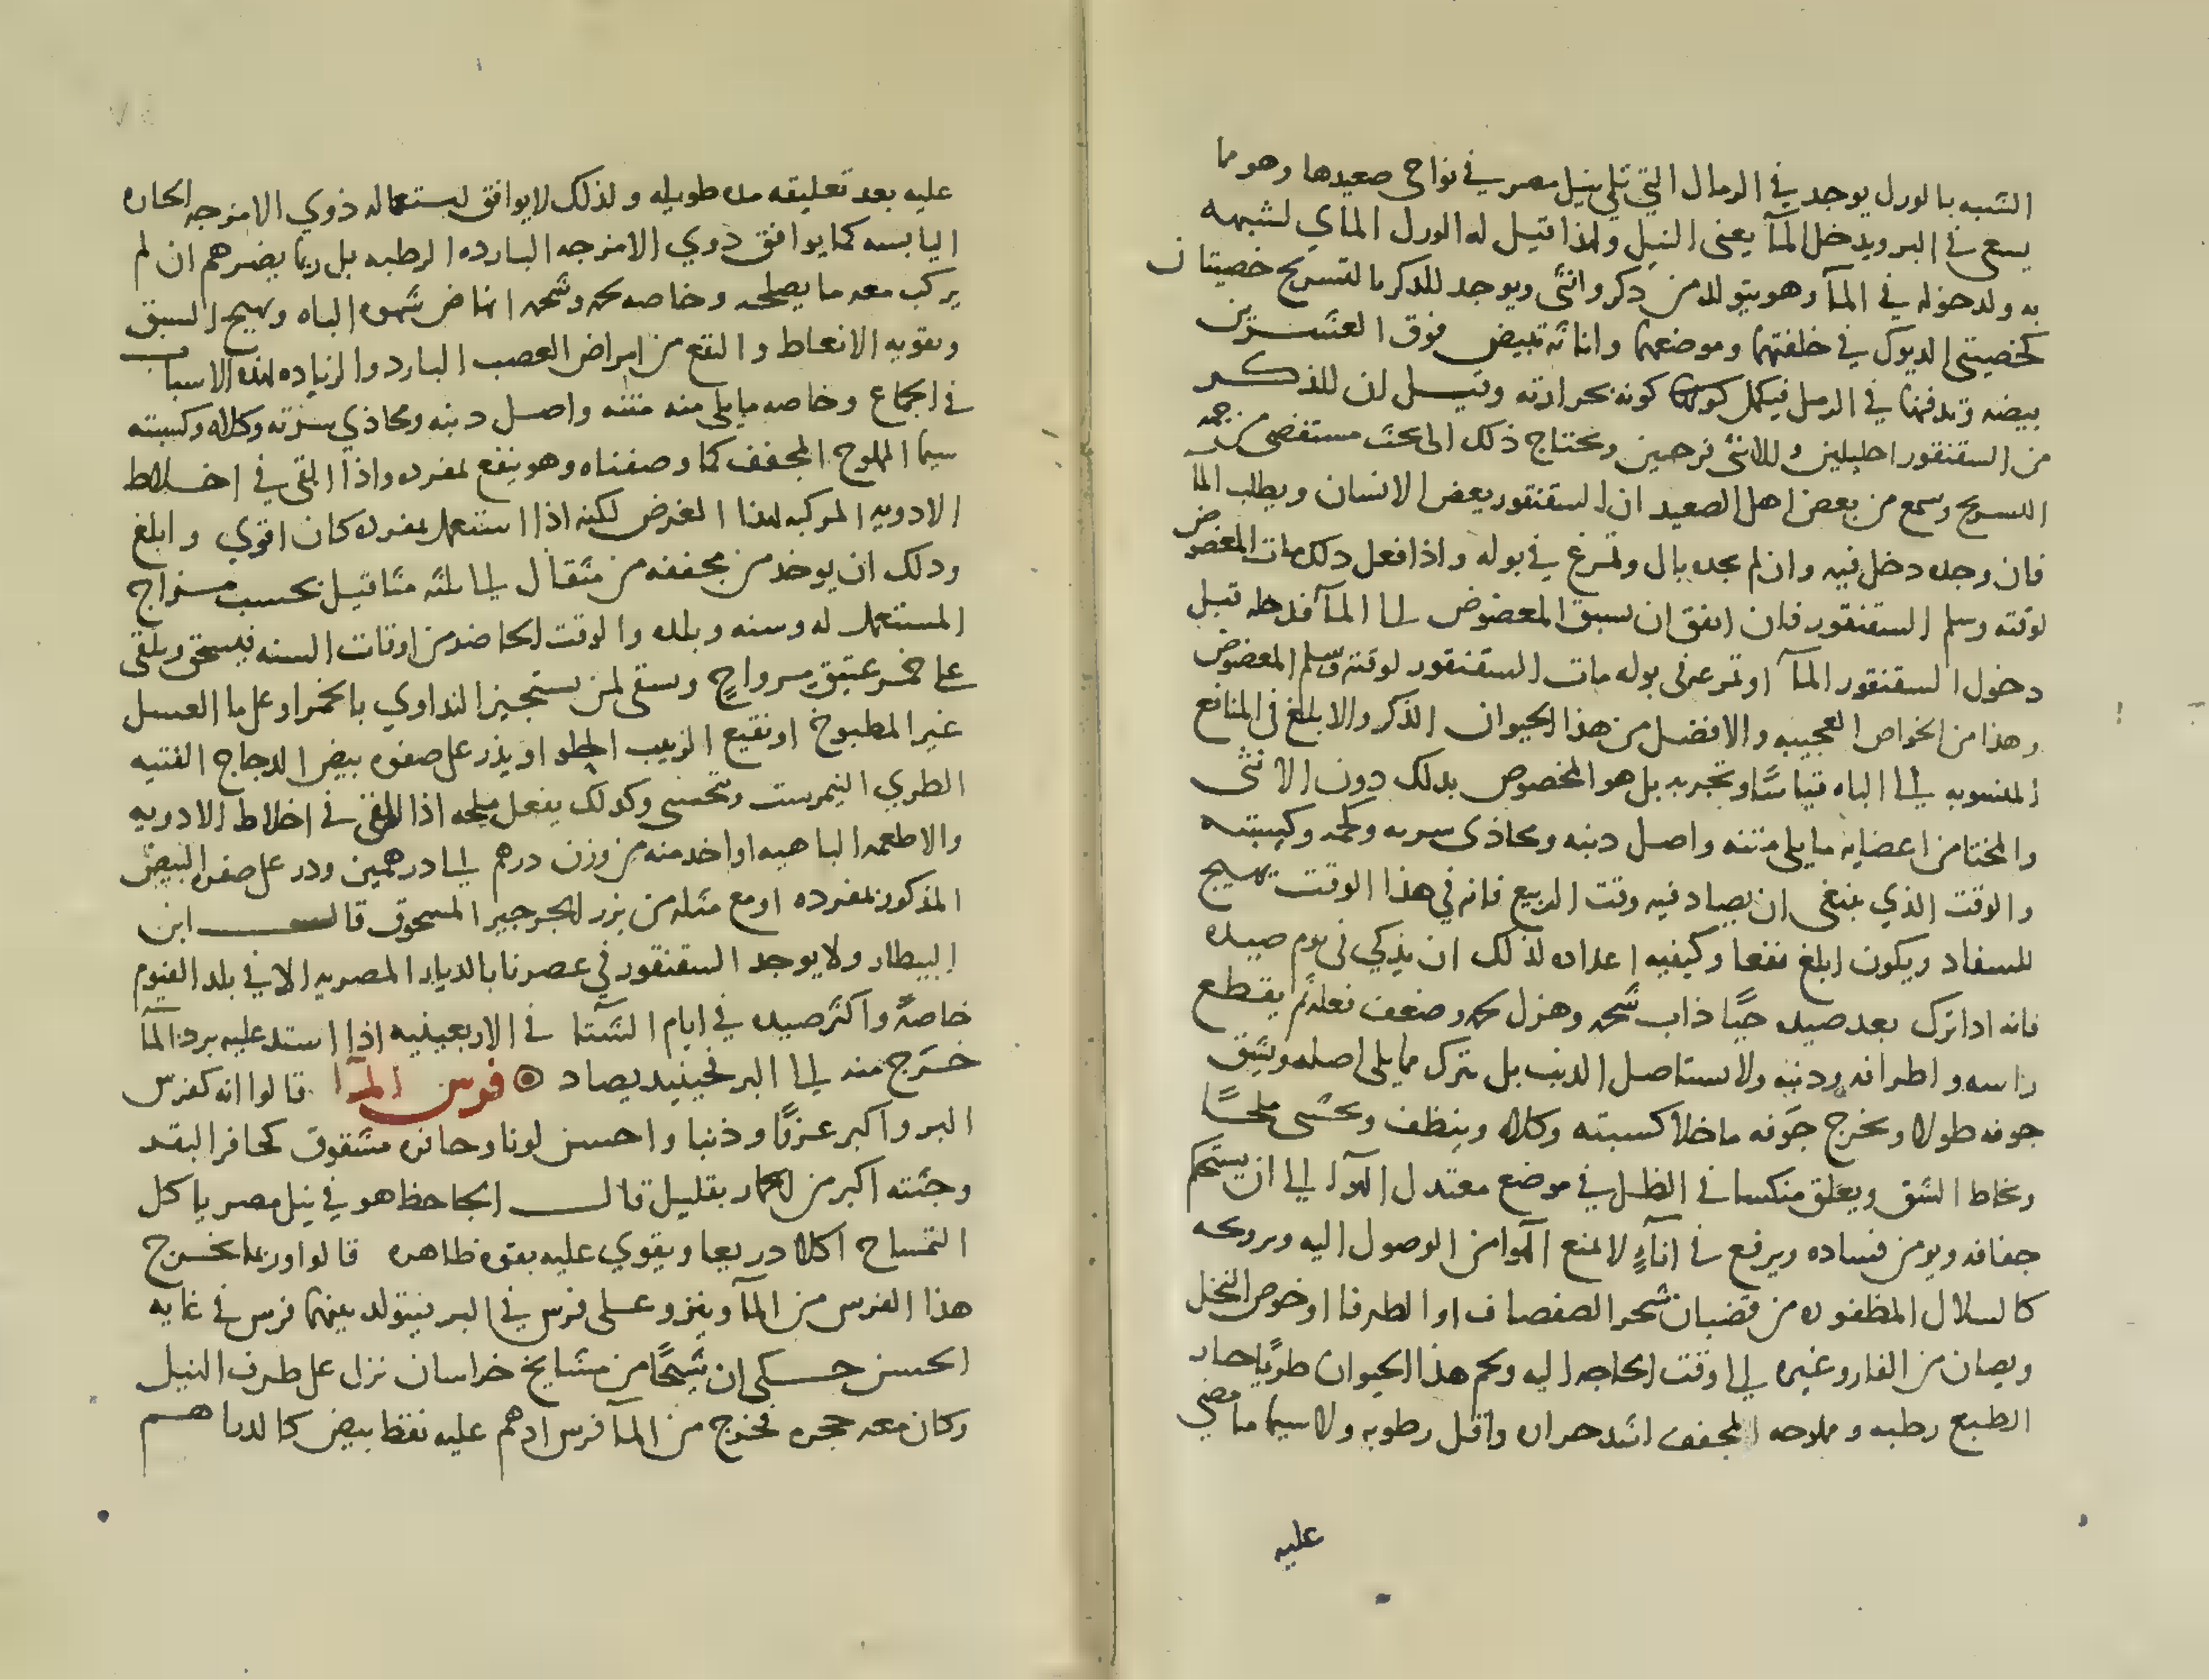 الشبيه بالورل يوجد في الرمال التي تلي نيل مصر في نواحي صعيدها وهو مما
يسعى في البر ويدخل المآ يعنى النيل ولهذا قيل له الورل المآي لشبهه
به ولدخوله في المآ وهو يتولد من دكر وانثى ويوجد للدكر بالتسريح خصيتان
كخصيتى الديوك في خلقتهما وموضعهما واناثه تبيض فوق العشرين
بيضه وتدفنها في الرمل فيكمل كونه بحرارته وقيل ان للذكر
من السقنقور احليلين وللانثى فرجين ويحتاج ذلك الى بحث مستقصى من جهه
التسريح وسمع من بعض اهل الصعيد ان السقنقور يعض الانسان ويطلب المآ
فان وجده دخل فيه وان لم يجده بال وتمرغ في بوله واذا فعل دلك مات المعضوض
لوقته وسلم السقنقور فان اتفق ان سبق المعضوض الى المآ فدخله قبل
دخول السقنقور المآ او تمرغ في بوله مات السقنقور لوقته وسلم المعضوض
وهذا من الخواص العجيبه والافضل من هذا الحيوان الذكر والابلغ في المنافع
المنسوبه الى الباه قياسًا وتجربه بل هو المخصوص بدلك دون الانثى
والمختار من اعضايه ما يلى متنه واصل دنبه ومحاذى سرته وكلمه وكيسته
والوقت الذي ينبغى ان يصاد فيه وقت الربيع فانه في هذا الوقت يهيج
للسفاد ويكون ابلغ نفعا وكيفيه اعداده لذلك ان يذكي في يوم صيده
فانه اداترك بعد صيده حيًا ذاب شحمه وهزل لحمه وضعف فعله ثم يقطع
راسه واطرافه ودنبه ولا يستاصل الدنب بل يترك مما يلى اصله ويشق
جوفه طولا ويخرج جَوفه ماخلا كسيته وكلاه وينظف ويحشى ملحًا
ويخاط الشق ويعلق منكسا في الظل في موضع معتدل الهوآ الى ان يستحكم
جفافه ويومن فساده ويرفع في انآءٍ لا يمنع الهوا من الوصول اليه ويروحه
كالسلال المظفوره من قضبان شجر الصفصاف او الطرفا او خوص النخل
ويصان من الفار وغيره الى وقت الحاجه اليه ولحم هذا الحيوان طريًا حار
الطبع رطبه و مملاحه المجفف اشد حراره واقل رطوبه ولا سيما ما مضى
عليه
عليه بعد تعليقه مده طويله ولذلك لا يوافق استعماله ذوي الامزجه الحاره
اليابسه كما يوافق ذوي الامزجه البارده الرطبه بل ربما يضرهم ان لم
يركب معه ما يصلحه وخاصه لحمه وشحمه انهاض شهوه الباه وتهيج السبق
وتقويه الانعاط والنفع من امراض العصب البارد والزياده لهذه الاسباب
في الجماع وخاصه ما يلى منه متنه واصل دنبه ومحاذي سرته وكلاه وكسيته
سيما المملوح المجفف كما وصفناه وهو ينفع لمفرده واذا القى في اخلاط
الادويه المركبه لهذا الغرض لكنه اذا استعمل بمفرده كان اقوي وابلغ
ودلك ان يوخذ من مجففه من مثقال الى ثلثه مثاقيل بحسب مزاج
المستعمل له وسنه وبلده والوقت الحاضر من اوقات السنه فيسحق ويلقى
على خمر عتيق مرواحٍ ويسقى لمن يستجيز التداوي بالخمر او على ما العسل
غير المطبوخ او نقيع الزبيب الحلو او يذر على صفره بيض الدجاج الفتيه
الطري النيمرست ويتحسى وكدلك يفعل بملحه اذا القى في اخلاط الادويه
والاطعمه الباهيه او اخد منه من وزن درهم الى درهمين ودر على صفره البيض
المذكور بمفرده او مع مثله من بزر الجرجير المسحوق قال ابن
البيطار ولا يوجد السقنقور في عصرنا بالديار المصريه الا في بلد الفيوم
خاصةً واكثر صيده في ايام الشتا في الاربعينيه اذا استد عليه برد المآ
خرج منه الى البر فحينيد يصاد ۞ فرس المآ قالوا انه كفرس
البر واكبر عرفًا وذنبا واحسن لونا وحافره مشقوق كحافر البقر
وجثته اكبر من الحمار بقليل قال الجاحظ هو في نيل مصر ياكل
التمساح اكلا دريعا ويقوي عليه بقوه ظاهره قالوا وربما يخرج
هذا الفرس من المآ وينزو على فرس في البر فيتولد بينهما فرس في غايه
الحسن حكى ان شيخًا من مشايخ خراسان نزل على طرف النيل
وكان معه حجره فخرج من المآ فرس ادهم عليه نقط بيض كالدراهم